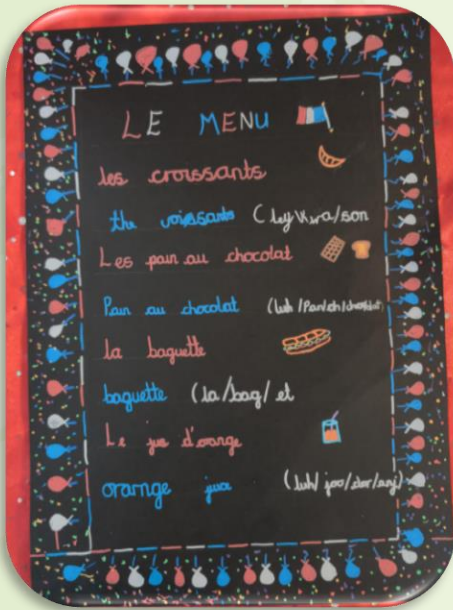 LE MENU
les croissants
the croissants (ley/kwa/son
Les pain au chocolat
Pain au chocolat (luh/Pan/oh/chocolat)
la baguette
baguette (la/bag/et
Le jus d'orange
orange juice (luh/joo/dor/anj)